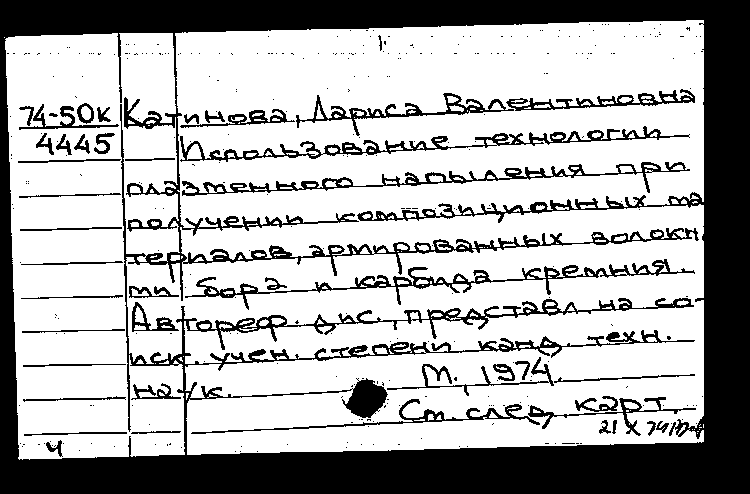 74-50к Катинова, Лариса Валентиновна
4445 Использование технологии
плазменного напыления при
получении композиционных ма
териалов, армированных волокн
ми бора и карбида кремния.
Автореф. дис., представл. на со-
иск. учен. степени канд. техн.
наук. М., 1974.
См. след. карт.
21 X 74
ч